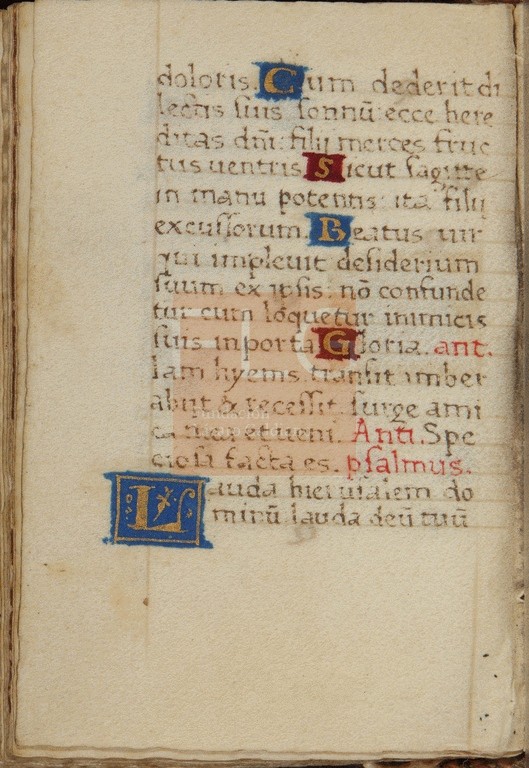 doloris. Cum dederit di
lectis suis sonnū: ecce here
ditas dñi: filij merces fruc
tus uentris. Sicut sagite
in manu potentis: ita filij
excussorum. Beatus uir
qui impleuit desiderium
suum ex ipsis: nō confunde
tur cum loquetur inimicis
suis in porta. Gloria. ant.
Iam hyems transiit imber
abiit & recessit. surge ami
ca mea et ueni. Anti. Spe
ciosa facta es. psalmus.
Lauda hierusalem do
minū lauda deū tuū